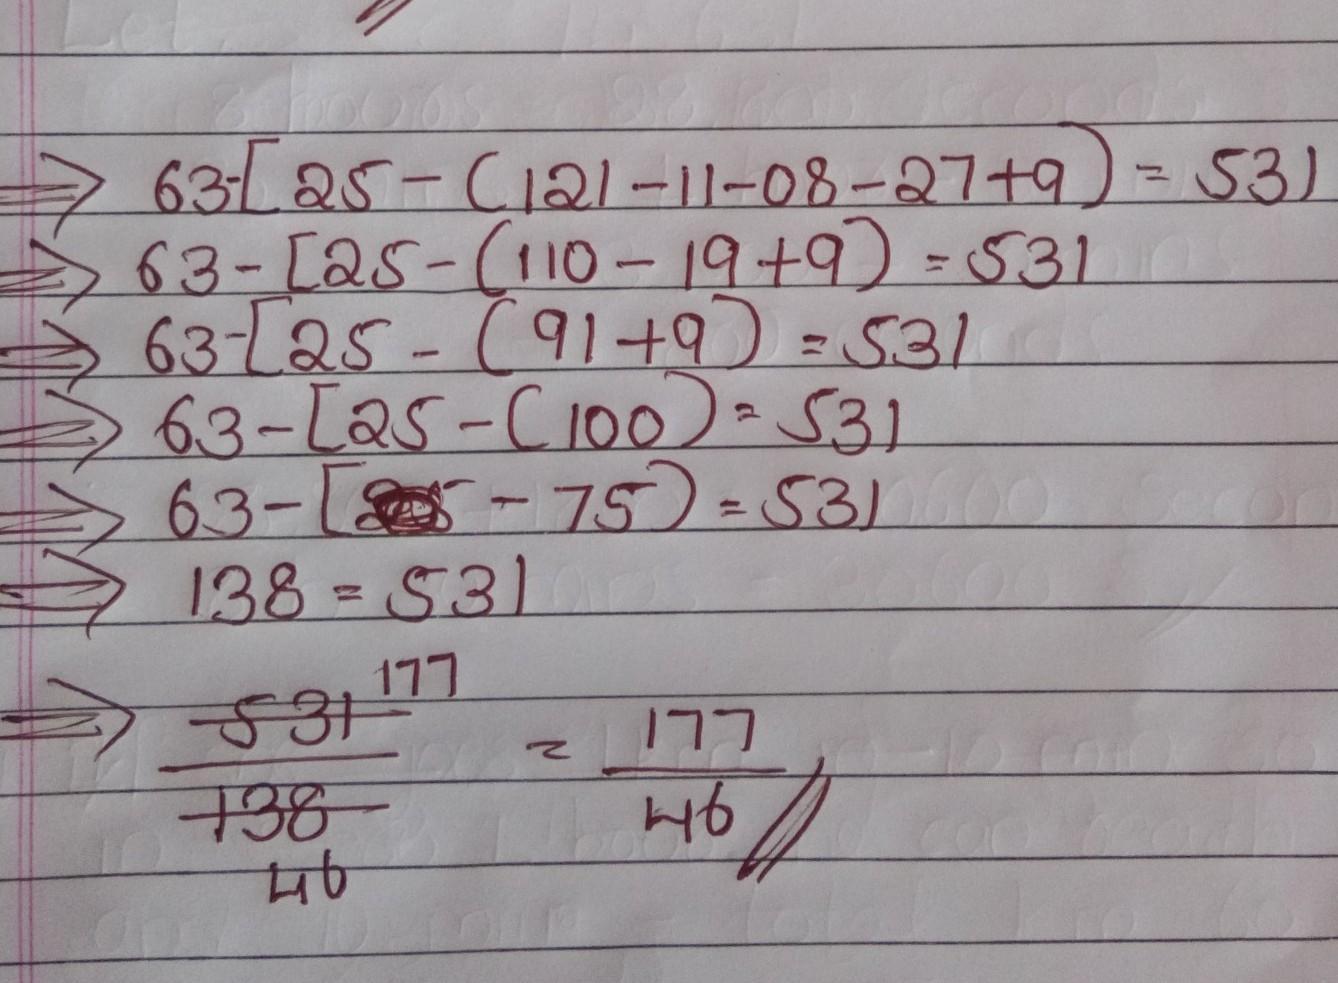 ⇒ 63-[25-(121-11-08-27+9) = 531
⇒ 63-[25-(110-19+9) = 531
⇒ 63-[25-(91+9) = 531
⇒ 63-[25-(100) = 531
⇒ 63-[-75) = 531
⇒ 138 = 531
177
⇒ 531/138 = 177/46
46